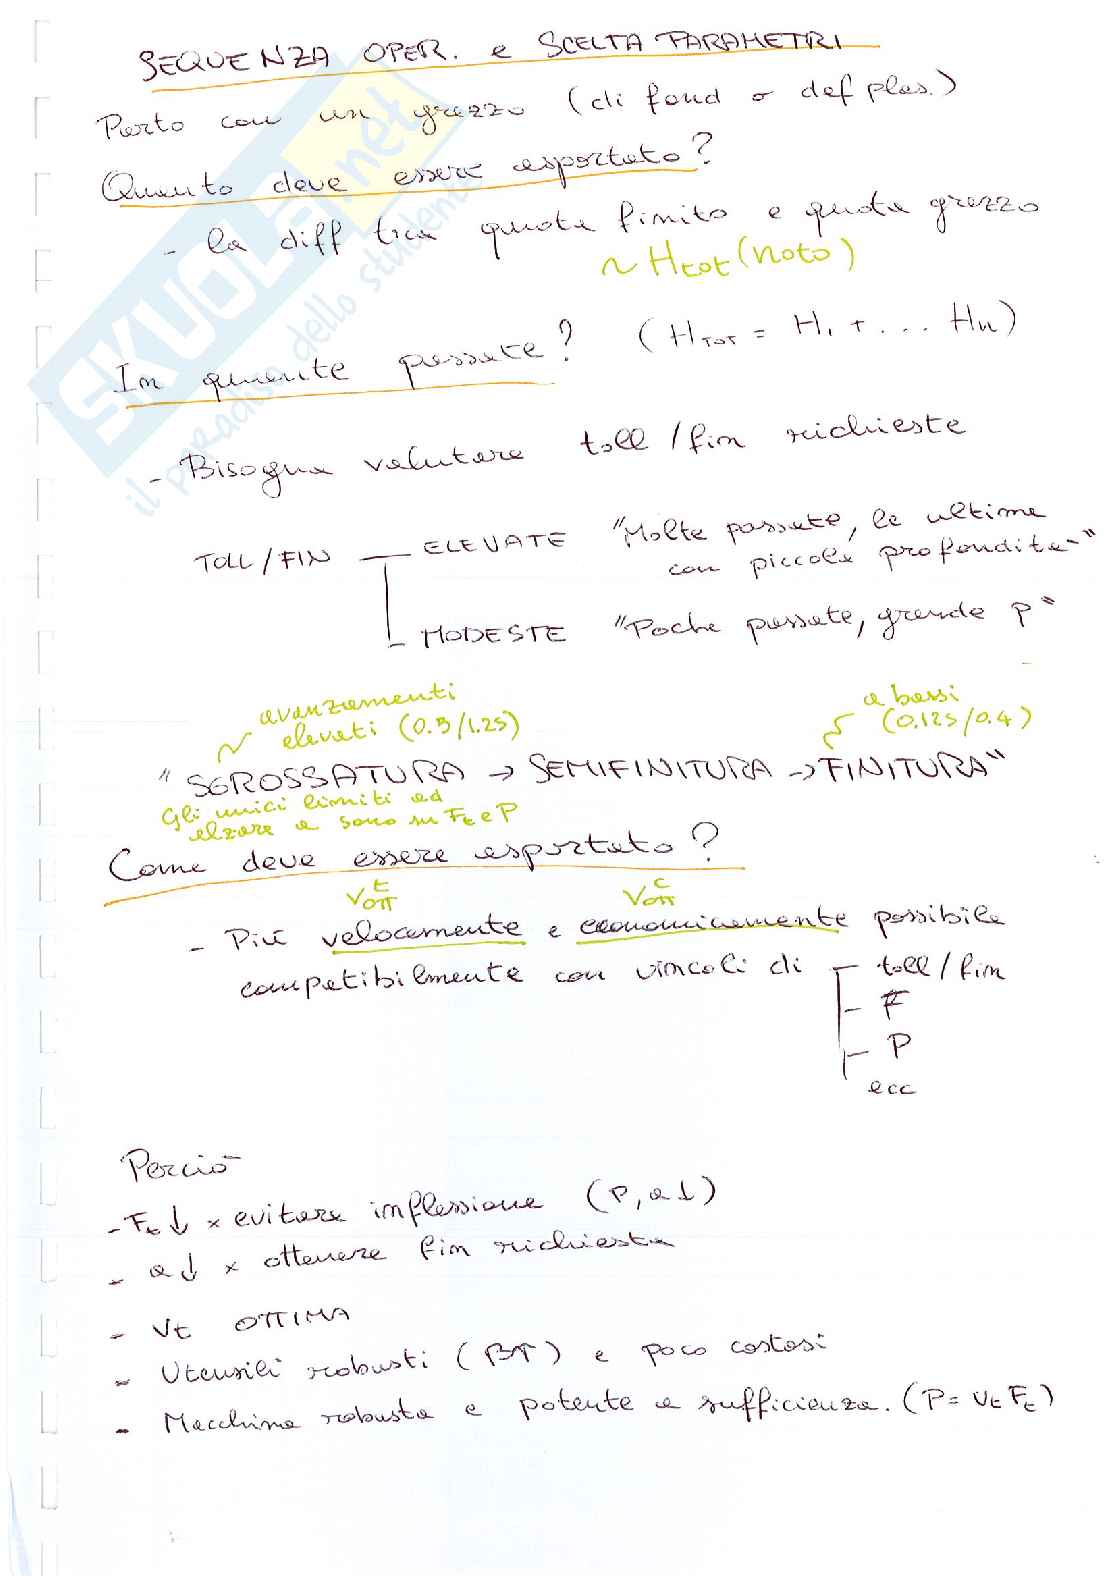 SEQUENZA OPER. e SCELTA PARAMETRI
Parto con un grezzo (di fond o def plas.)
Quanto deve essere asportato?
- la diff tra quota finito e quota grezzo
~ Htot (noto)
In quante passate? (HTOT = H1 + ... Hn)
- Bisogna valutare toll/fin richieste
TOLL/FIN — ELEVATE "Molte passate, le ultime
con piccola profondità"
MODESTE "Poche passate, grande p"
avanzamenti
elevati (0.5/1.25)
a bassi
(0.125/0.4)
"SGROSSATURA → SEMIFINITURA → FINITURA"
Gli unici limiti ad
alzare a sono su Ft e P
Come deve essere asportato?
VOTT t VOTT c
- Più velocemente e economicamente possibile
compatibilmente con vincoli di - toll/fin
- F
- P
ecc
Perciò
- Ft ↓ x evitare inflessione (P, a ↓)
- a ↓ x ottenere fin richiesta
- Vt OTTIMA
- Utensili robusti (BT) e poco costosi
- Macchina robusta e potente a sufficienza. (P = Vt Ft)
SKUOLA.net
il paradiso dello studente